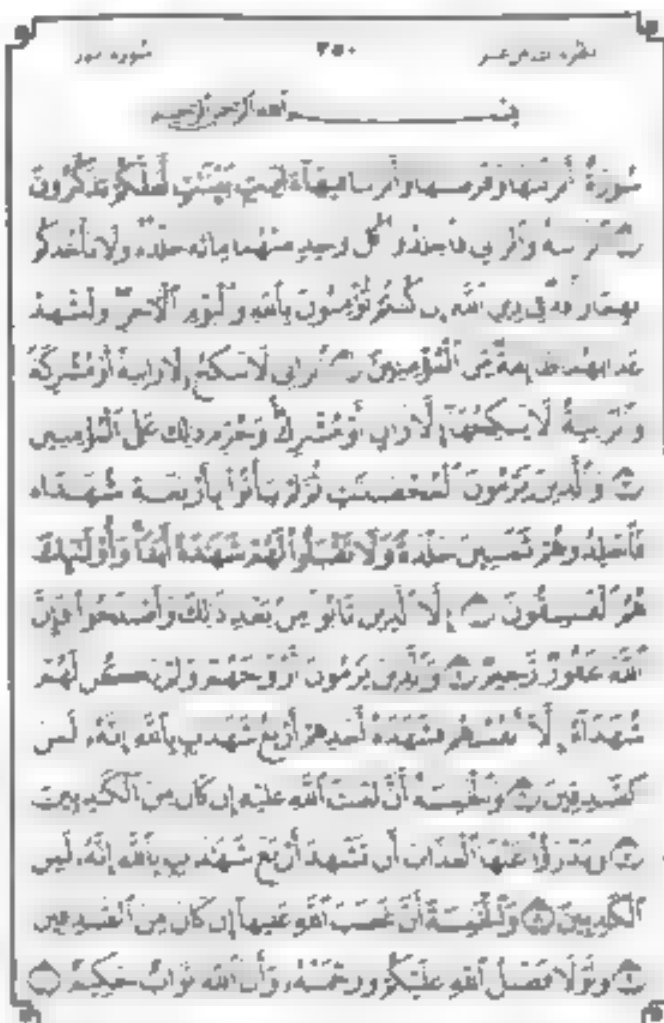 سُورَة النور ٣٥٠ الجزء الثامن عشر
بِسْمِ ٱللَّهِ ٱلرَّحْمَٰنِ ٱلرَّحِيمِ
سُورَةٌ أَنزَلْنَٰهَا وَفَرَضْنَٰهَا وَأَنزَلْنَا فِيهَآ ءَايَٰتٍۭ بَيِّنَٰتٍ لَّعَلَّكُمْ تَذَكَّرُونَ
۝١ ٱلزَّانِيَةُ وَٱلزَّانِي فَٱجْلِدُوا۟ كُلَّ وَٰحِدٍ مِّنْهُمَا مِا۟ئَةَ جَلْدَةٍ وَلَا تَأْخُذْكُم
بِهِمَا رَأْفَةٌ فِي دِينِ ٱللَّهِ إِن كُنتُمْ تُؤْمِنُونَ بِٱللَّهِ وَٱلْيَوْمِ ٱلْءَاخِرِ وَلْيَشْهَدْ
عَذَابَهُمَا طَآئِفَةٌ مِّنَ ٱلْمُؤْمِنِينَ ۝٢ ٱلزَّانِي لَا يَنكِحُ إِلَّا زَانِيَةً أَوْ مُشْرِكَةً
وَٱلزَّانِيَةُ لَا يَنكِحُهَآ إِلَّا زَانٍ أَوْ مُشْرِكٌ وَحُرِّمَ ذَٰلِكَ عَلَى ٱلْمُؤْمِنِينَ
۝٣ وَٱلَّذِينَ يَرْمُونَ ٱلْمُحْصَنَٰتِ ثُمَّ لَمْ يَأْتُوا۟ بِأَرْبَعَةِ شُهَدَآءَ
فَٱجْلِدُوهُمْ ثَمَٰنِينَ جَلْدَةً وَلَا تَقْبَلُوا۟ لَهُمْ شَهَٰدَةً أَبَدًا وَأُو۟لَٰٓئِكَ
هُمُ ٱلْفَٰسِقُونَ ۝٤ إِلَّا ٱلَّذِينَ تَابُوا۟ مِنۢ بَعْدِ ذَٰلِكَ وَأَصْلَحُوا۟ فَإِنَّ
ٱللَّهَ غَفُورٌ رَّحِيمٌ ۝٥ وَٱلَّذِينَ يَرْمُونَ أَزْوَٰجَهُمْ وَلَمْ يَكُن لَّهُمْ
شُهَدَآءُ إِلَّآ أَنفُسُهُمْ فَشَهَٰدَةُ أَحَدِهِمْ أَرْبَعُ شَهَٰدَٰتٍۭ بِٱللَّهِ إِنَّهُۥ لَمِنَ
ٱلصَّٰدِقِينَ ۝٦ وَٱلْخَٰمِسَةُ أَنَّ لَعْنَتَ ٱللَّهِ عَلَيْهِ إِن كَانَ مِنَ ٱلْكَٰذِبِينَ
۝٧ وَيَدْرَؤُا۟ عَنْهَا ٱلْعَذَابَ أَن تَشْهَدَ أَرْبَعَ شَهَٰدَٰتٍۭ بِٱللَّهِ إِنَّهُۥ لَمِنَ
ٱلْكَٰذِبِينَ ۝٨ وَٱلْخَٰمِسَةَ أَنَّ غَضَبَ ٱللَّهِ عَلَيْهَآ إِن كَانَ مِنَ ٱلصَّٰدِقِينَ
۝٩ وَلَوْلَا فَضْلُ ٱللَّهِ عَلَيْكُمْ وَرَحْمَتُهُۥ وَأَنَّ ٱللَّهَ تَوَّابٌ حَكِيمٌ ۝١٠